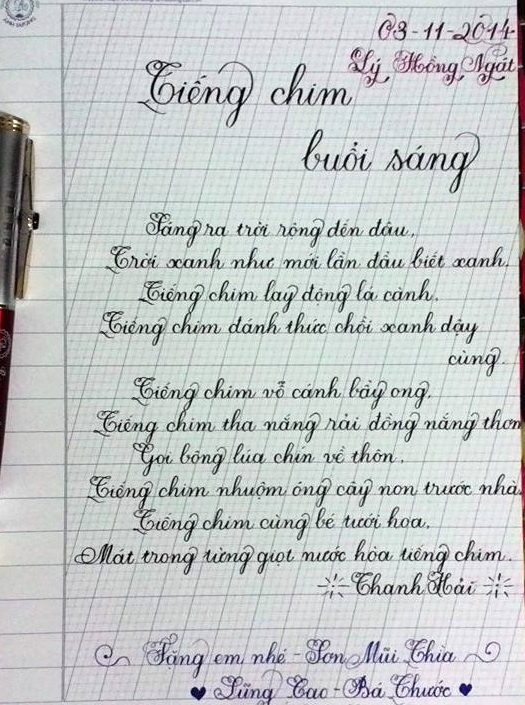 03-11-2014
Lý Hồng Ngát
Tiếng chim
buổi sáng
Sáng ra trời rộng đến đâu.
Trời xanh như mới lần đầu biết xanh.
Tiếng chim lay động lá cành.
Tiếng chim đánh thức chồi xanh dậy
cùng.
Tiếng chim vỗ cánh bầy ong.
Tiếng chim tha nắng rải đồng nắng thơm
Gọi bông lúa chín về thôn.
Tiếng chim nhuộm óng cây non trước nhà.
Tiếng chim cùng bé tưới hoa.
Mát trong từng giọt nước hòa tiếng chim.
Thanh Hải
Tặng em nhé - Sơn Mũi Thìa
Lũng Cao - Bá Thước